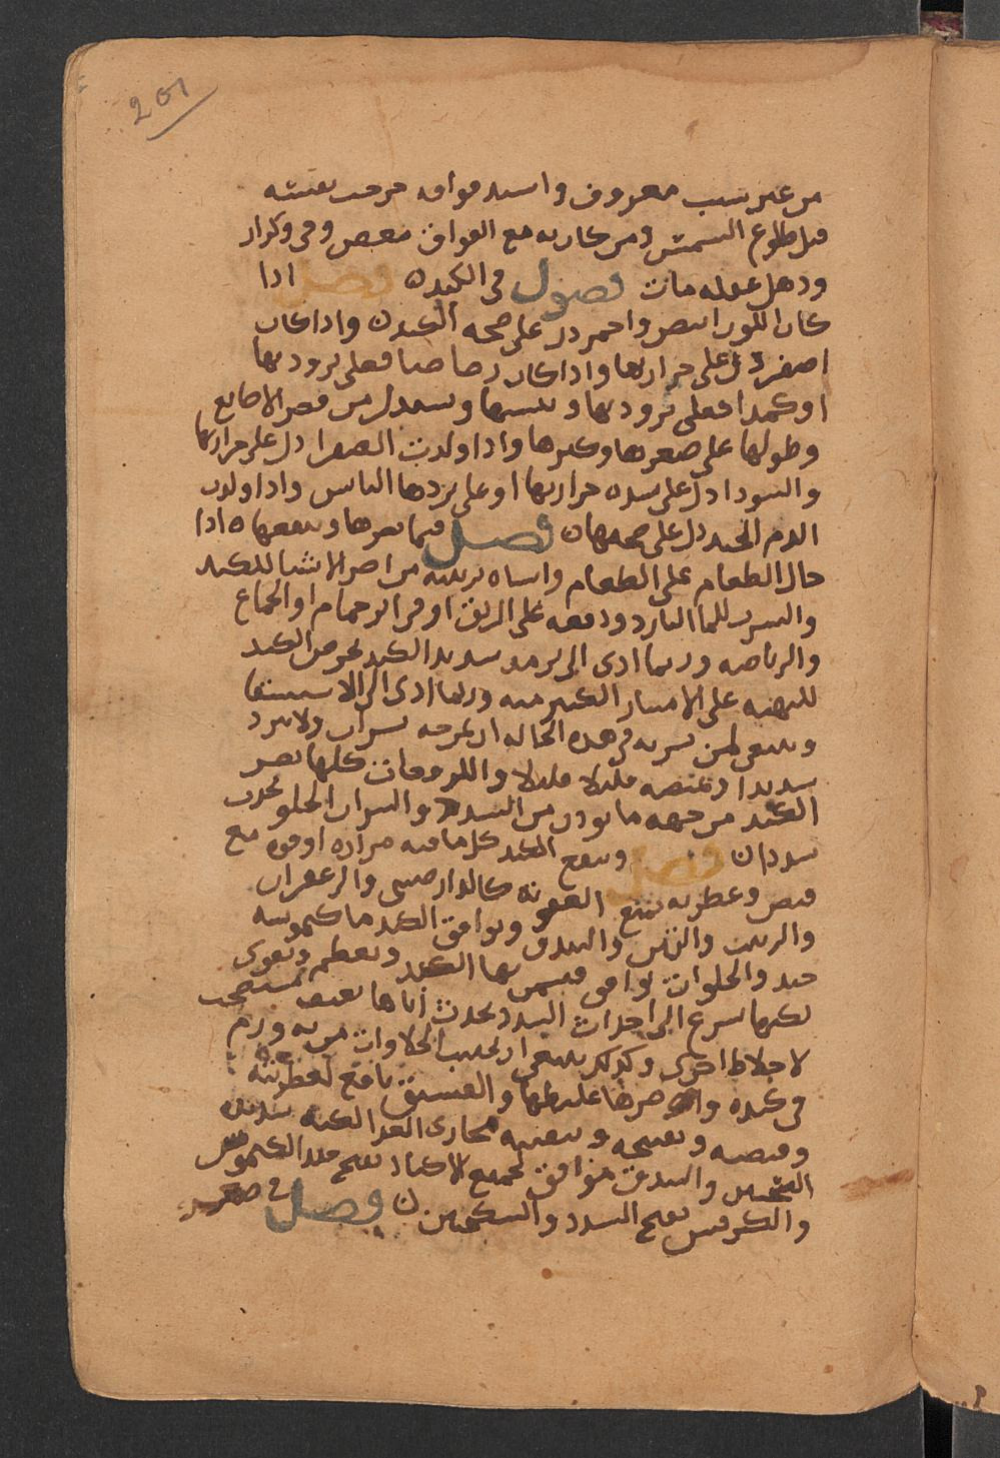 201
من غير سبب معروف واسند فواقه خرجت نفسه
قبل طلوع الشمس ومن كان به مع الفواق مغص وقي وكزاز
وذهل عقله مات فصول في الكبد فصل اذا
كان اللون ابيض واحمر دل على صحة الكبد ن واذا كان
اصفر دل على حرارتها واذا كان رصاصيا فعلى برودتها
او كمدا فعلى برودتها ويبسها ويستدل من قصر الاصابع
وطولها على صغرها وكبرها واذا ولدت الصفرا دل على حرارتها
والسودا دل على شدة حرارتها او على بردها اليابس واذا ولدت
الدم الجيد دل على صحتها ن فصل فيما يضرها وينفعها ه ادا
خال الطعام على الطعام واساة ترتيبه من اضر الاشيا للكبد
والشرب للما البارد ودفعه على الريق او في اثر حمام او الجماع
والرياضه وربما ادى الى تبريد شديد الكبد لحرص الكبد
للهبه على الامتيار الكثير منه وربما ادى الى الاستسقا
وينبغي لمن شربه في هذه الحاله ان يمزجه بشراب ولا يبرد
شديدا ويمتصه قليلا قليلا واللزوجات كلها تضر
الكبد من جهه ما تورث من السدد والشراب الحلو يحدث
سددا ن فصل وينفع الكبد كل ما فيه مراره او قوه مع
قبض وعطريه تمنع العفونه كالدارصيني والزعفران
والزبيب والتين والبندق ويوافق الكبد ما كيموسه
جيد والحلوات توافق فيسمن بها الكبد ويعظم ويقوى
لكنها تسرع الى احداث السدد بجذب اياها بعنف مستصحب
لاخلاط اخرى وكذلك ينبغي ان يجتنب الحلاوات من به ورم
في كبده وا صرها غليظها والفستق نافع لعطريته
وقبضه وتفتيحه وتنقيته مجارى الغذا لكنه شديد
التسخين والبندق موافق لجميع الاكباد يفتح جيد الكيموس
والكرفس يفتح السدد والسكنجبين ن فصل في صغر